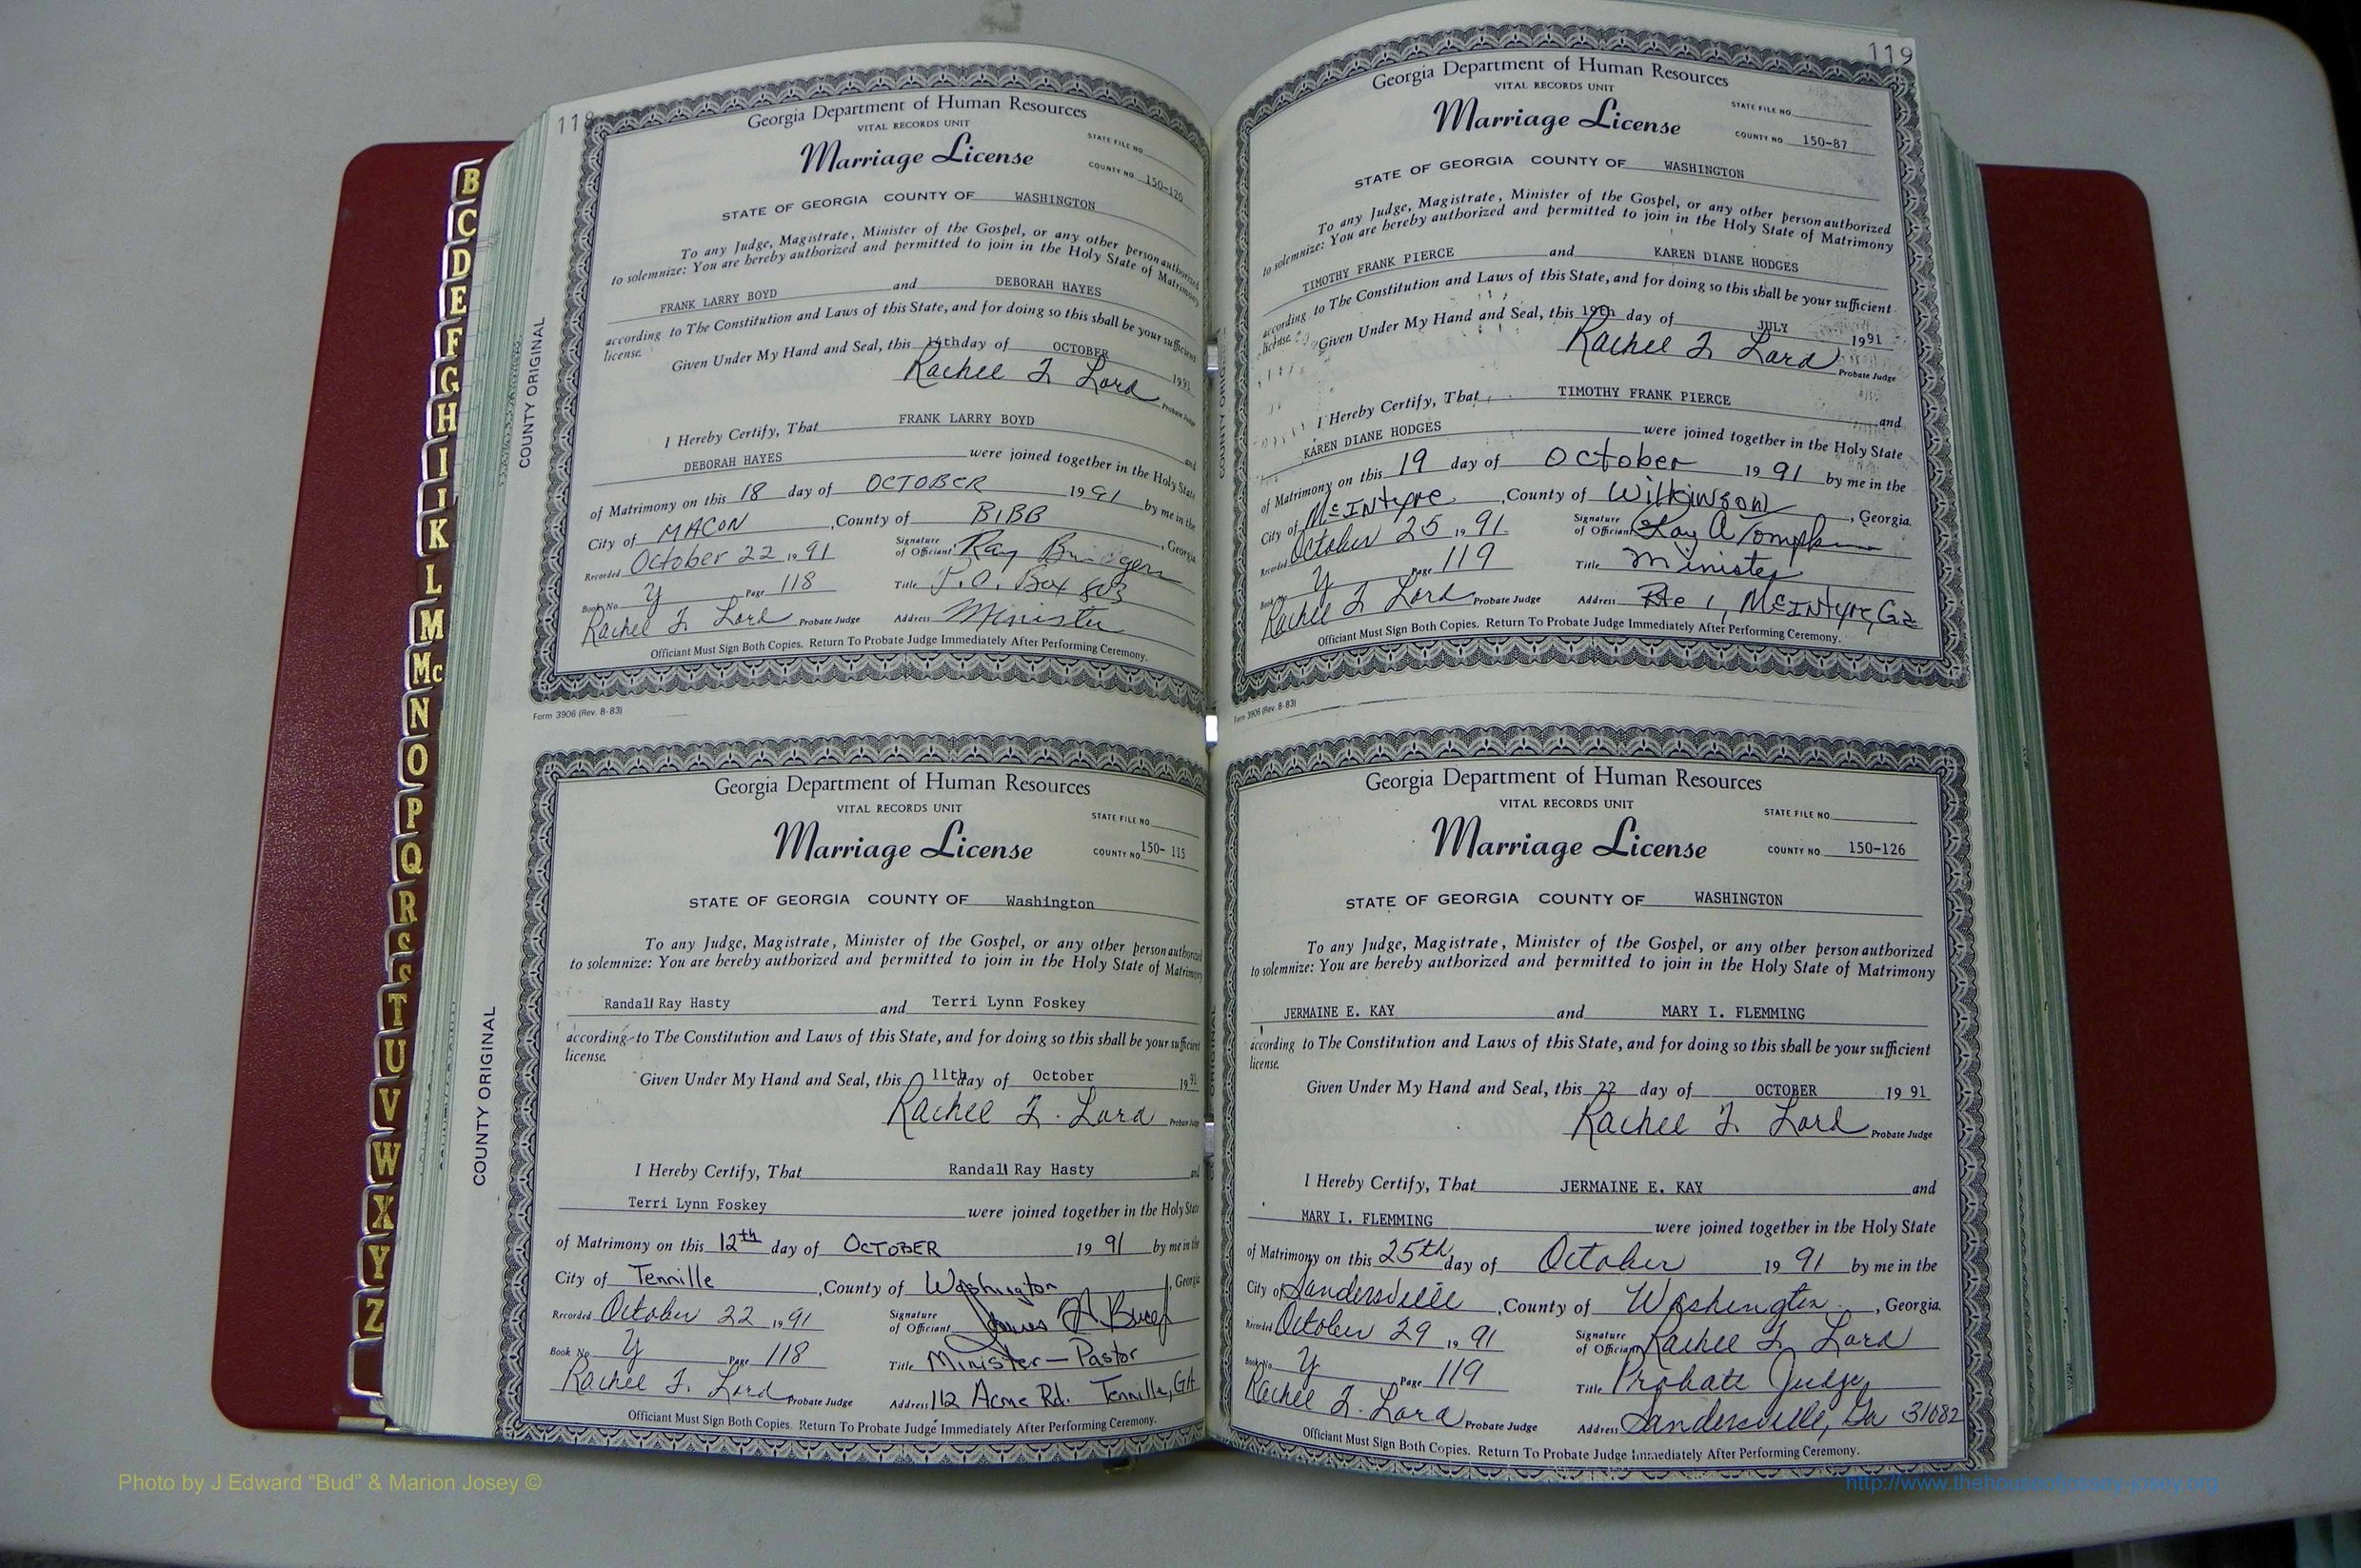 118
Georgia Department of Human Resources
VITAL RECORDS UNIT
STATE FILE NO.
Marriage License
COUNTY NO. 150-120
STATE OF GEORGIA COUNTY OF WASHINGTON
To any Judge, Magistrate, Minister of the Gospel, or any other person authorized
to solemnize: You are hereby authorized and permitted to join in the Holy State of Matrimony
FRANK LARRY BOYD and DEBORAH HAYES
according to The Constitution and Laws of this State, and for doing so this shall be your sufficient
license.
Given Under My Hand and Seal, this day of OCTOBER 1991
Rachel F Lord Probate Judge
I Hereby Certify, That FRANK LARRY BOYD and
DEBORAH HAYES were joined together in the Holy State
of Matrimony on this 18 day of OCTOBER 1991 by me in the
City of MACON, County of BIBB, Georgia
Recorded October 22 1991 Signature of Officiant Ray
Book No. Y Page 118 Title P.O. Box 803
Rachel F. Lord Probate Judge Address Minister
Officiant Must Sign Both Copies. Return To Probate Judge Immediately After Performing Ceremony.
Form 3906 (Rev. 8-83)
COUNTY ORIGINAL
Georgia Department of Human Resources
VITAL RECORDS UNIT
STATE FILE NO.
Marriage License
COUNTY NO. 150- 115
STATE OF GEORGIA COUNTY OF Washington
To any Judge, Magistrate, Minister of the Gospel, or any other person authorized
to solemnize: You are hereby authorized and permitted to join in the Holy State of Matrimony
Randall Ray Hasty and Terri Lynn Foskey
according to The Constitution and Laws of this State, and for doing so this shall be your sufficient
license.
Given Under My Hand and Seal, this 11th day of October 1991
Rachel F. Lord Probate Judge
I Hereby Certify, That Randall Ray Hasty and
Terri Lynn Foskey were joined together in the Holy State
of Matrimony on this 12th day of OCTOBER 1991 by me in the
City of Tennille, County of Washington, Georgia
Recorded October 22 1991 Signature of Officiant James
Book No. Y Page 118 Title Minister - Pastor
Rachel F. Lord Probate Judge Address 112 Acme Rd. Tennille, GA
Officiant Must Sign Both Copies. Return To Probate Judge Immediately After Performing Ceremony.
COUNTY ORIGINAL
119
Georgia Department of Human Resources
VITAL RECORDS UNIT
STATE FILE NO.
Marriage License
COUNTY NO. 150-87
STATE OF GEORGIA COUNTY OF WASHINGTON
To any Judge, Magistrate, Minister of the Gospel, or any other person authorized
to solemnize: You are hereby authorized and permitted to join in the Holy State of Matrimony
TIMOTHY FRANK PIERCE and KAREN DIANE HODGES
according to The Constitution and Laws of this State, and for doing so this shall be your sufficient
license.
Given Under My Hand and Seal, this 19th day of JULY 1991
Rachel F Lord Probate Judge
I Hereby Certify, That TIMOTHY FRANK PIERCE and
KAREN DIANE HODGES were joined together in the Holy State
of Matrimony on this 19 day of October 1991 by me in the
City of McIntyre, County of Wilkinson, Georgia.
Recorded October 25 1991 Signature of Officiant
Book No. Y Page 119 Title Minister
Rachel F Lord Probate Judge Address Rte 1, McIntyre, Ga
Officiant Must Sign Both Copies. Return To Probate Judge Immediately After Performing Ceremony.
Form 3906 (Rev. 8-83)
Georgia Department of Human Resources
VITAL RECORDS UNIT
STATE FILE NO.
Marriage License
COUNTY NO. 150-126
STATE OF GEORGIA COUNTY OF WASHINGTON
To any Judge, Magistrate, Minister of the Gospel, or any other person authorized
to solemnize: You are hereby authorized and permitted to join in the Holy State of Matrimony
JERMAINE E. KAY and MARY I. FLEMMING
according to The Constitution and Laws of this State, and for doing so this shall be your sufficient
license.
Given Under My Hand and Seal, this 22 day of OCTOBER 1991
Rachel F. Lord Probate Judge
I Hereby Certify, That JERMAINE E. KAY and
MARY I. FLEMMING were joined together in the Holy State
of Matrimony on this 25th day of October 1991 by me in the
City of Sandersville, County of Washington, Georgia.
Recorded October 29 1991 Signature of Officiant Rachel F. Lord
Book No. Y Page 119 Title Probate Judge
Rachel F. Lord Probate Judge Address Sandersville, Ga 31082
Officiant Must Sign Both Copies. Return To Probate Judge Immediately After Performing Ceremony.
B
C
D
E
F
G
H
I
J
K
L
M
Mc
N
O
P
Q
R
S
S
T
U
V
W
X
Y
Z
Photo by J Edward “Bud” & Marion Josey ©